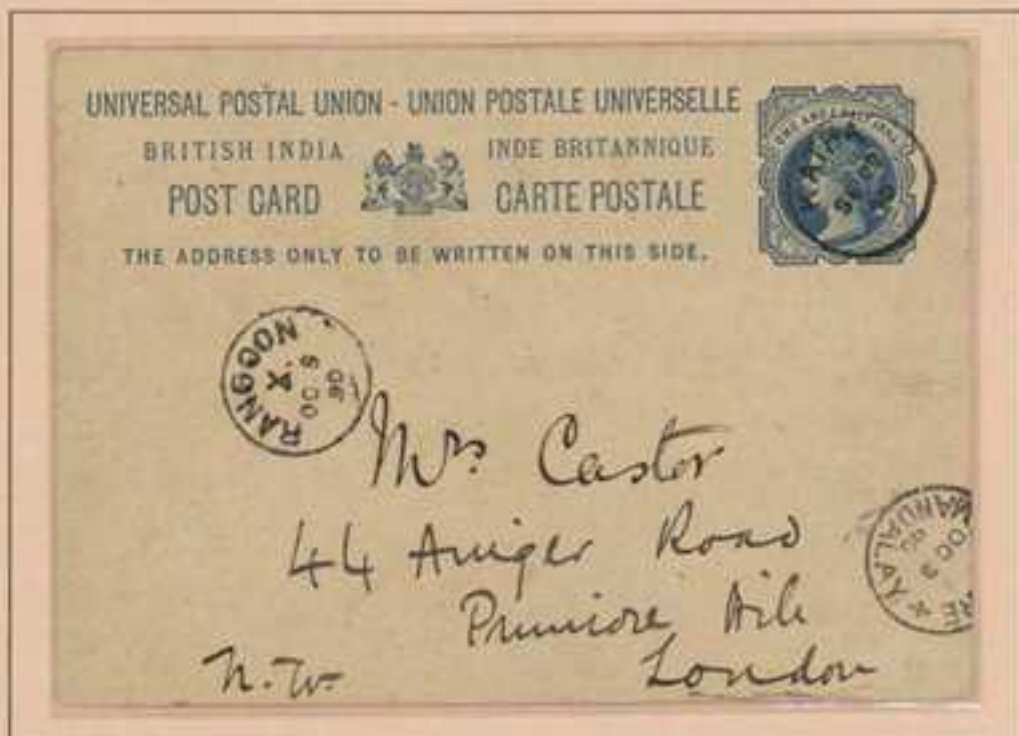 UNIVERSAL POSTAL UNION - UNION POSTALE UNIVERSELLE
BRITISH INDIA INDE BRITANNIQUE
POST CARD CARTE POSTALE
THE ADDRESS ONLY TO BE WRITTEN ON THIS SIDE.
ONE AND A HALF ANNA
KATHA
SE
RANGOON
X.
OC 5
90
Mrs. Castor
44 Ainger Road
Primrose Hill
N.W. London
MANDALAY
OC 3
90
RE